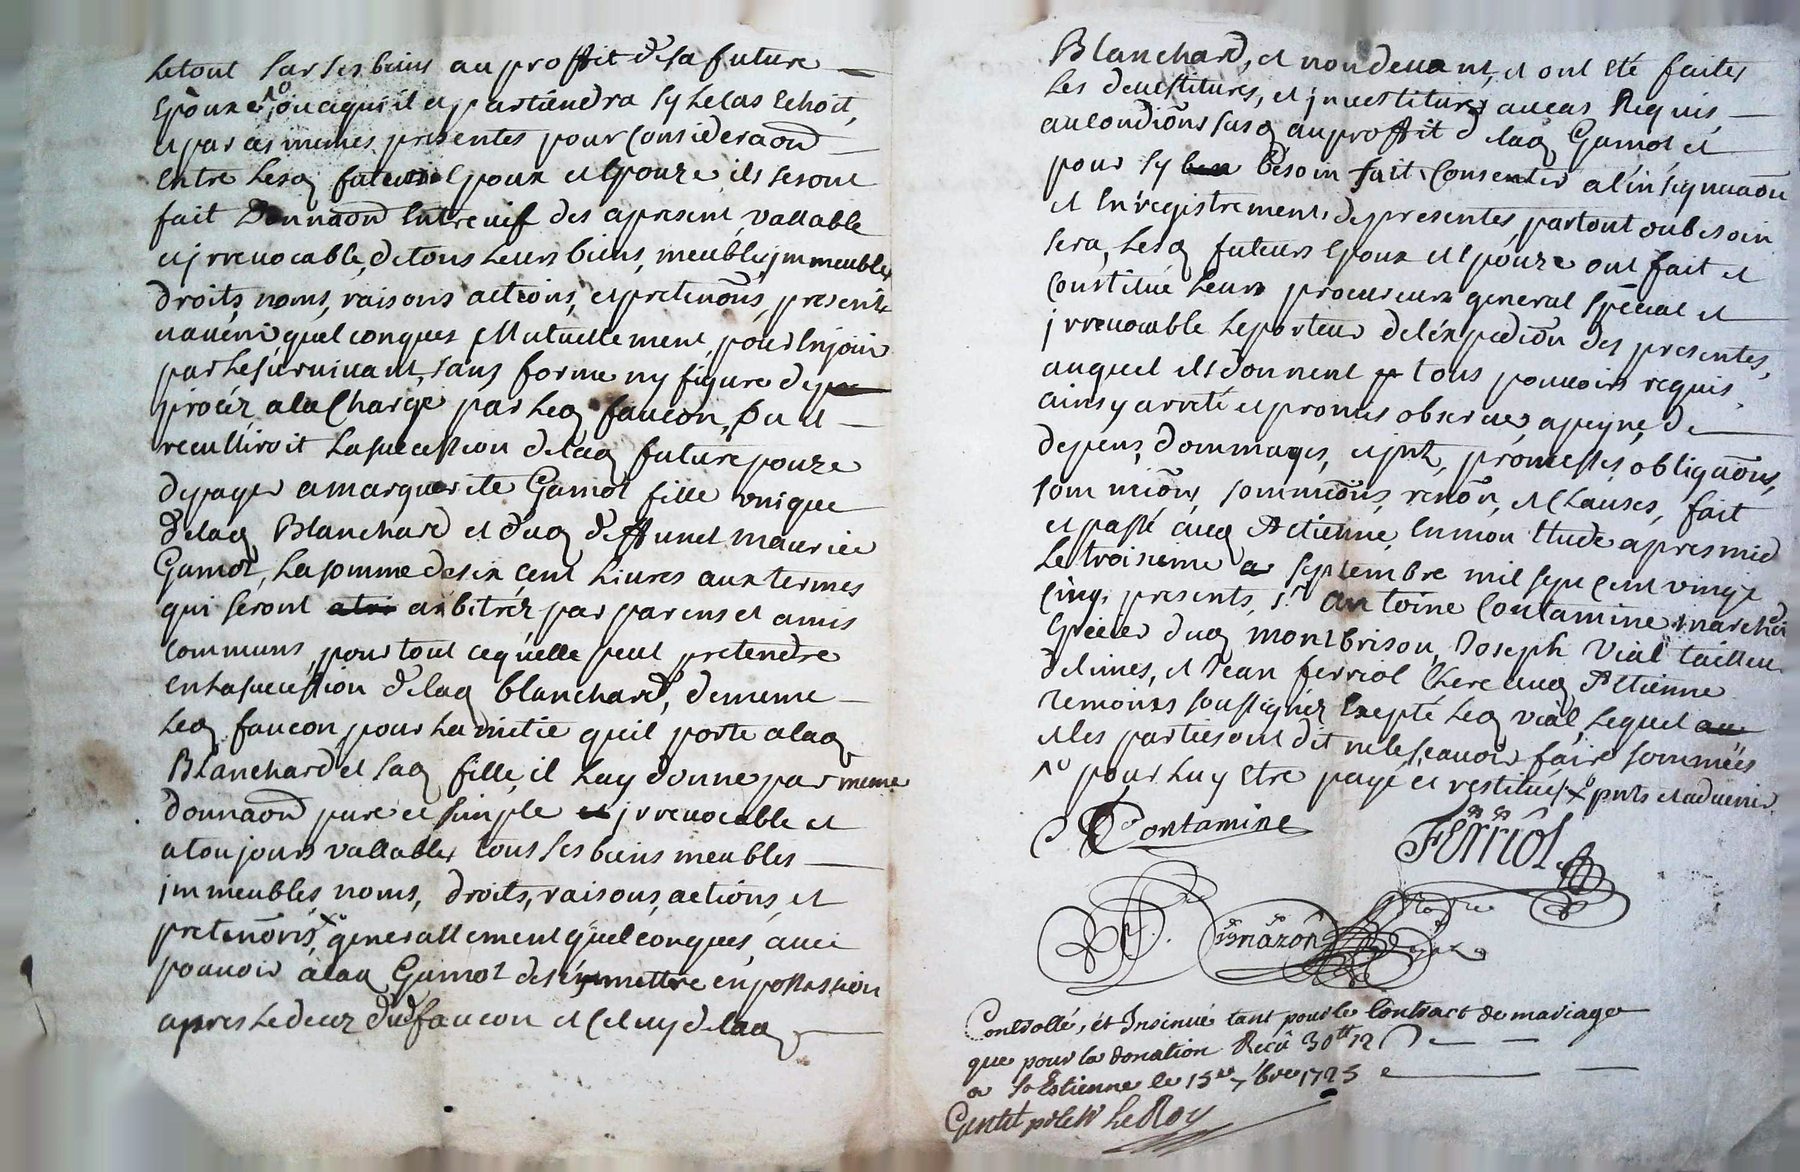 le tout sur ses biens au proffit de sa future
Epouze, ou a qui il apartiendra sy le cas echoit,
et par ces memes presentes pour consideraōn
entre lesq futurs Epoux et Epouze ils se sont
fait Donnaōn entre vif des apresent, vallable
et jrrevocable, de tous leurs biens, meubles, jmmeubles
droits, noms, raisons actions, et pretenōns, presents
navenir quelconques Mutuellement, pour en jouir
par le survivant, sans forme ny figure de
procéz, a la Charge par leq faucon, ou il
reculliroit la succession de laq future epouze
de payer a marguerite Gamot fille unique
de laq Blanchard et duq deffunct maurice
Gamot, la somme de six cent livres aux termes
qui seront arbitréz par parens et amis
communs, pour tout ce qu'elle peut pretendre
en la succession de laq blanchard, de meme
leq faucon, pour l'amitie qu'il porte a laq
Blanchard et saq fille, il luy donne par meme
donnaōn pure et simple jrrevocable et
a toujours vallable, tous ses biens meubles
jmmeubles, noms, droits, raisons, actions, et
pretenōns, generallement quelconques, avec
pouvoir a laq Gamot de s'en mettre en possession
apres le decez dud faucon et Celuy de laq
Blanchard, et non devant, et ont eté faites
les devestitures, et jnvestitures au cas Requis,
au condiōns susq au proffit de laq Gamot et
pour sy besoin fait, Consentir a l'insignuaōn
et Enregistrement, de presentes, partout ou besoin
sera, Lesq futurs Epoux et Epouze ont fait et
Constitué leurs procureurs general Special et
jrrevocable le porteur de l'expediōn des presentes,
auquel ils donnent tous pouvoirs requis
ainsy arreté et promis observer, a peyne, de
depens, dommages, et jnts, promesses, obligaōns,
soumiōns, renōn, et Clauses, fait
et passé aud St Etienne, en mon Etude apres midy
Le troisieme septembre mil sept cent vingt
Cinq, presents, Sr antoine Contamine marchand
Epicier duq montbrison, Joseph Vial tailleur
de limes, et Jean ferriol Clerc auq St Etienne
temoins soussignéz Exepté leq vial, lequel
et les parties ont dit ne le sçavoir faire sommées
pour luy etre payé et restitué, prnts et advenir
Contamine
Ferriol
Controllé, et Insinué tant pour le Contract de mariage
que pour la donation Receu 30tt 12 s
a St Estienne le 15e 7bre 1725
LeRoy